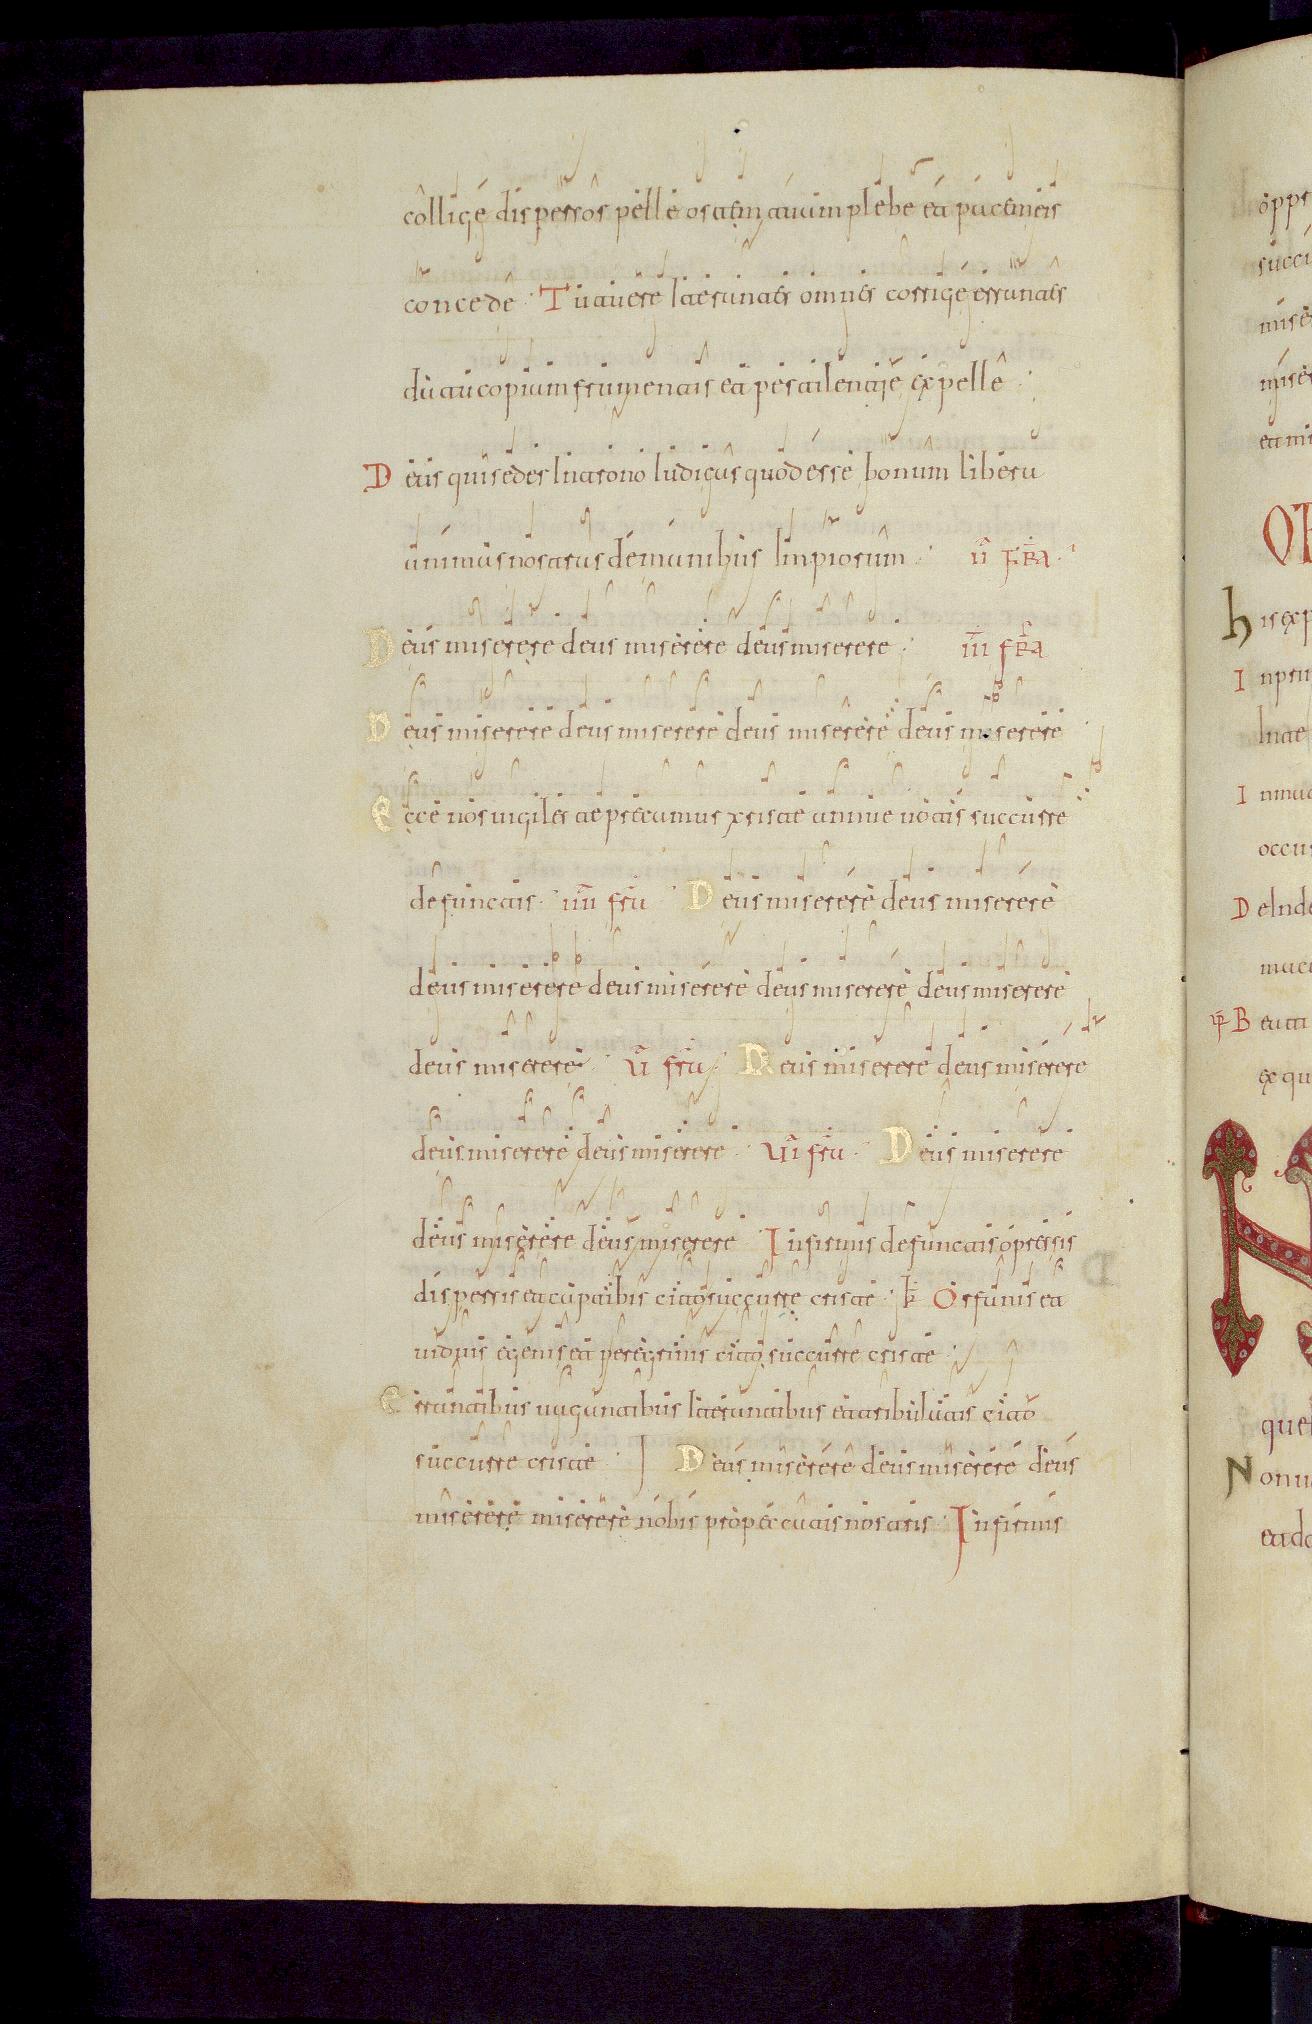 collige dispersos pelle ostem tuum plebe et pacemeis
concede · Tu tuere iterantes omnes corrige errantes
da tu copiam frumentis et pestilentie expelle ·
Deus qui sedes in trono iudicas quod esse bonum libera
animas nostras de manibus impiorum · II FRA ·
Deus miserere deus miserere deus miserere · III fRA
Deus miserere deus miserere deus miserere deus miserere
Ecce nos vigiles te precamur xriste anime noctis succurre
defunctis · IIII fra · Deus miserere deus miserere
deus miserere deus miserere deus miserere deus miserere
deus miserere · V fra · Deus miserere deus miserere
deus miserere deus miserere · VI fra · Deus miserere
deus miserere deus miserere Infirmis defunctis opressis
dispersis et captibis cito succurre criste · k Orfanis et
viduis egenis et peregrinis cito succurre criste ·
Errantibus vagantibus iterantibus et tribulatis cito
succurre criste · Deus miserere deus miserere deus
miserere miserere nobis prop peccatis nostris · Infirmis
oppr
succu
misere
misere
et mi
OR
his exp
In pri
In te
In mu
occur
Deinde
Beati
ex qu
que
Non